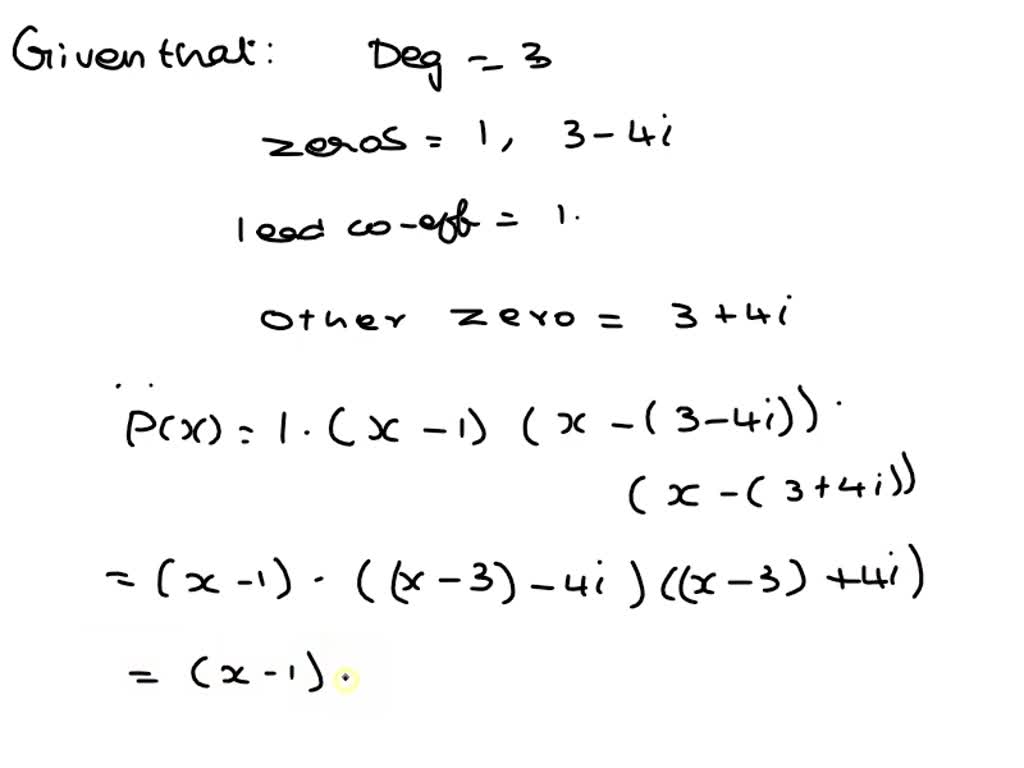 Given that: Deg = 3
zeros = 1, 3-4i
lead co-eff = 1.
other zero = 3+4i
P(x) = 1.(x-1) (x-(3-4i)).
(x-(3+4i))
= (x-1) . ((x-3)-4i) ((x-3)+4i)
= (x-1) .